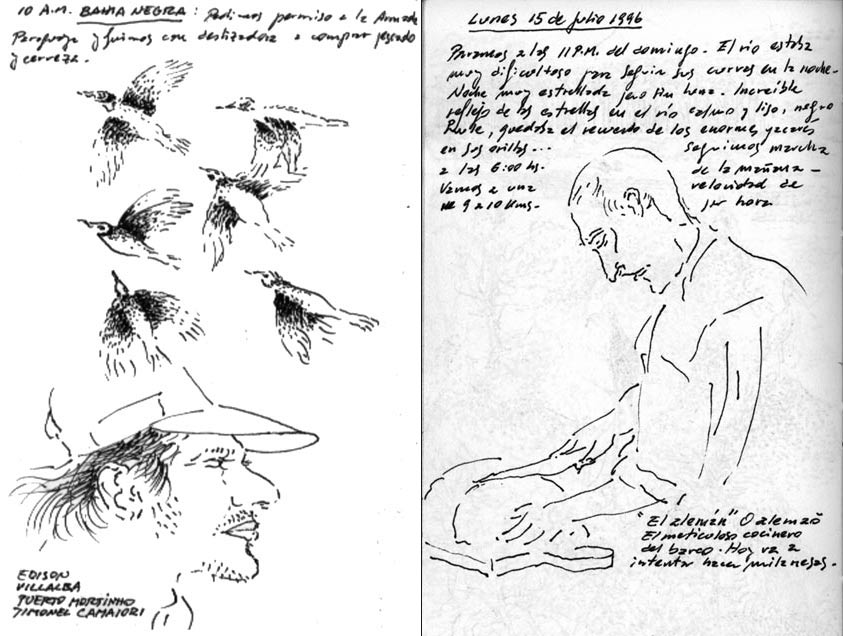 10 A.M. BAHIA NEGRA: Pedimos permiso a la Armada
Paraguaya y fuimos con deslizadora a comprar pescado
y cerveza.
EDISON
VILLALBA
PUERTO MORTINHO
Lunes 15 de julio 1996
Paramos a las 11 P.M. del domingo. El río estaba
muy dificultoso para seguir sus curvas en la noche.
Noche muy estrellada pero sin luna. Increíble
reflejo de las estrellas en el río calmo y liso, negro
quedaba el recuerdo de los enormes yacarés
en sus orillas... seguimos marcha
a las 6:00 hs. de la mañana -
Vamos a una velocidad de
de 9 a 10 Kms. por hora
"El alemán" O alemaõ
El meticuloso cocinero
del barco. Hoy va a
intentar hacer milanesas.